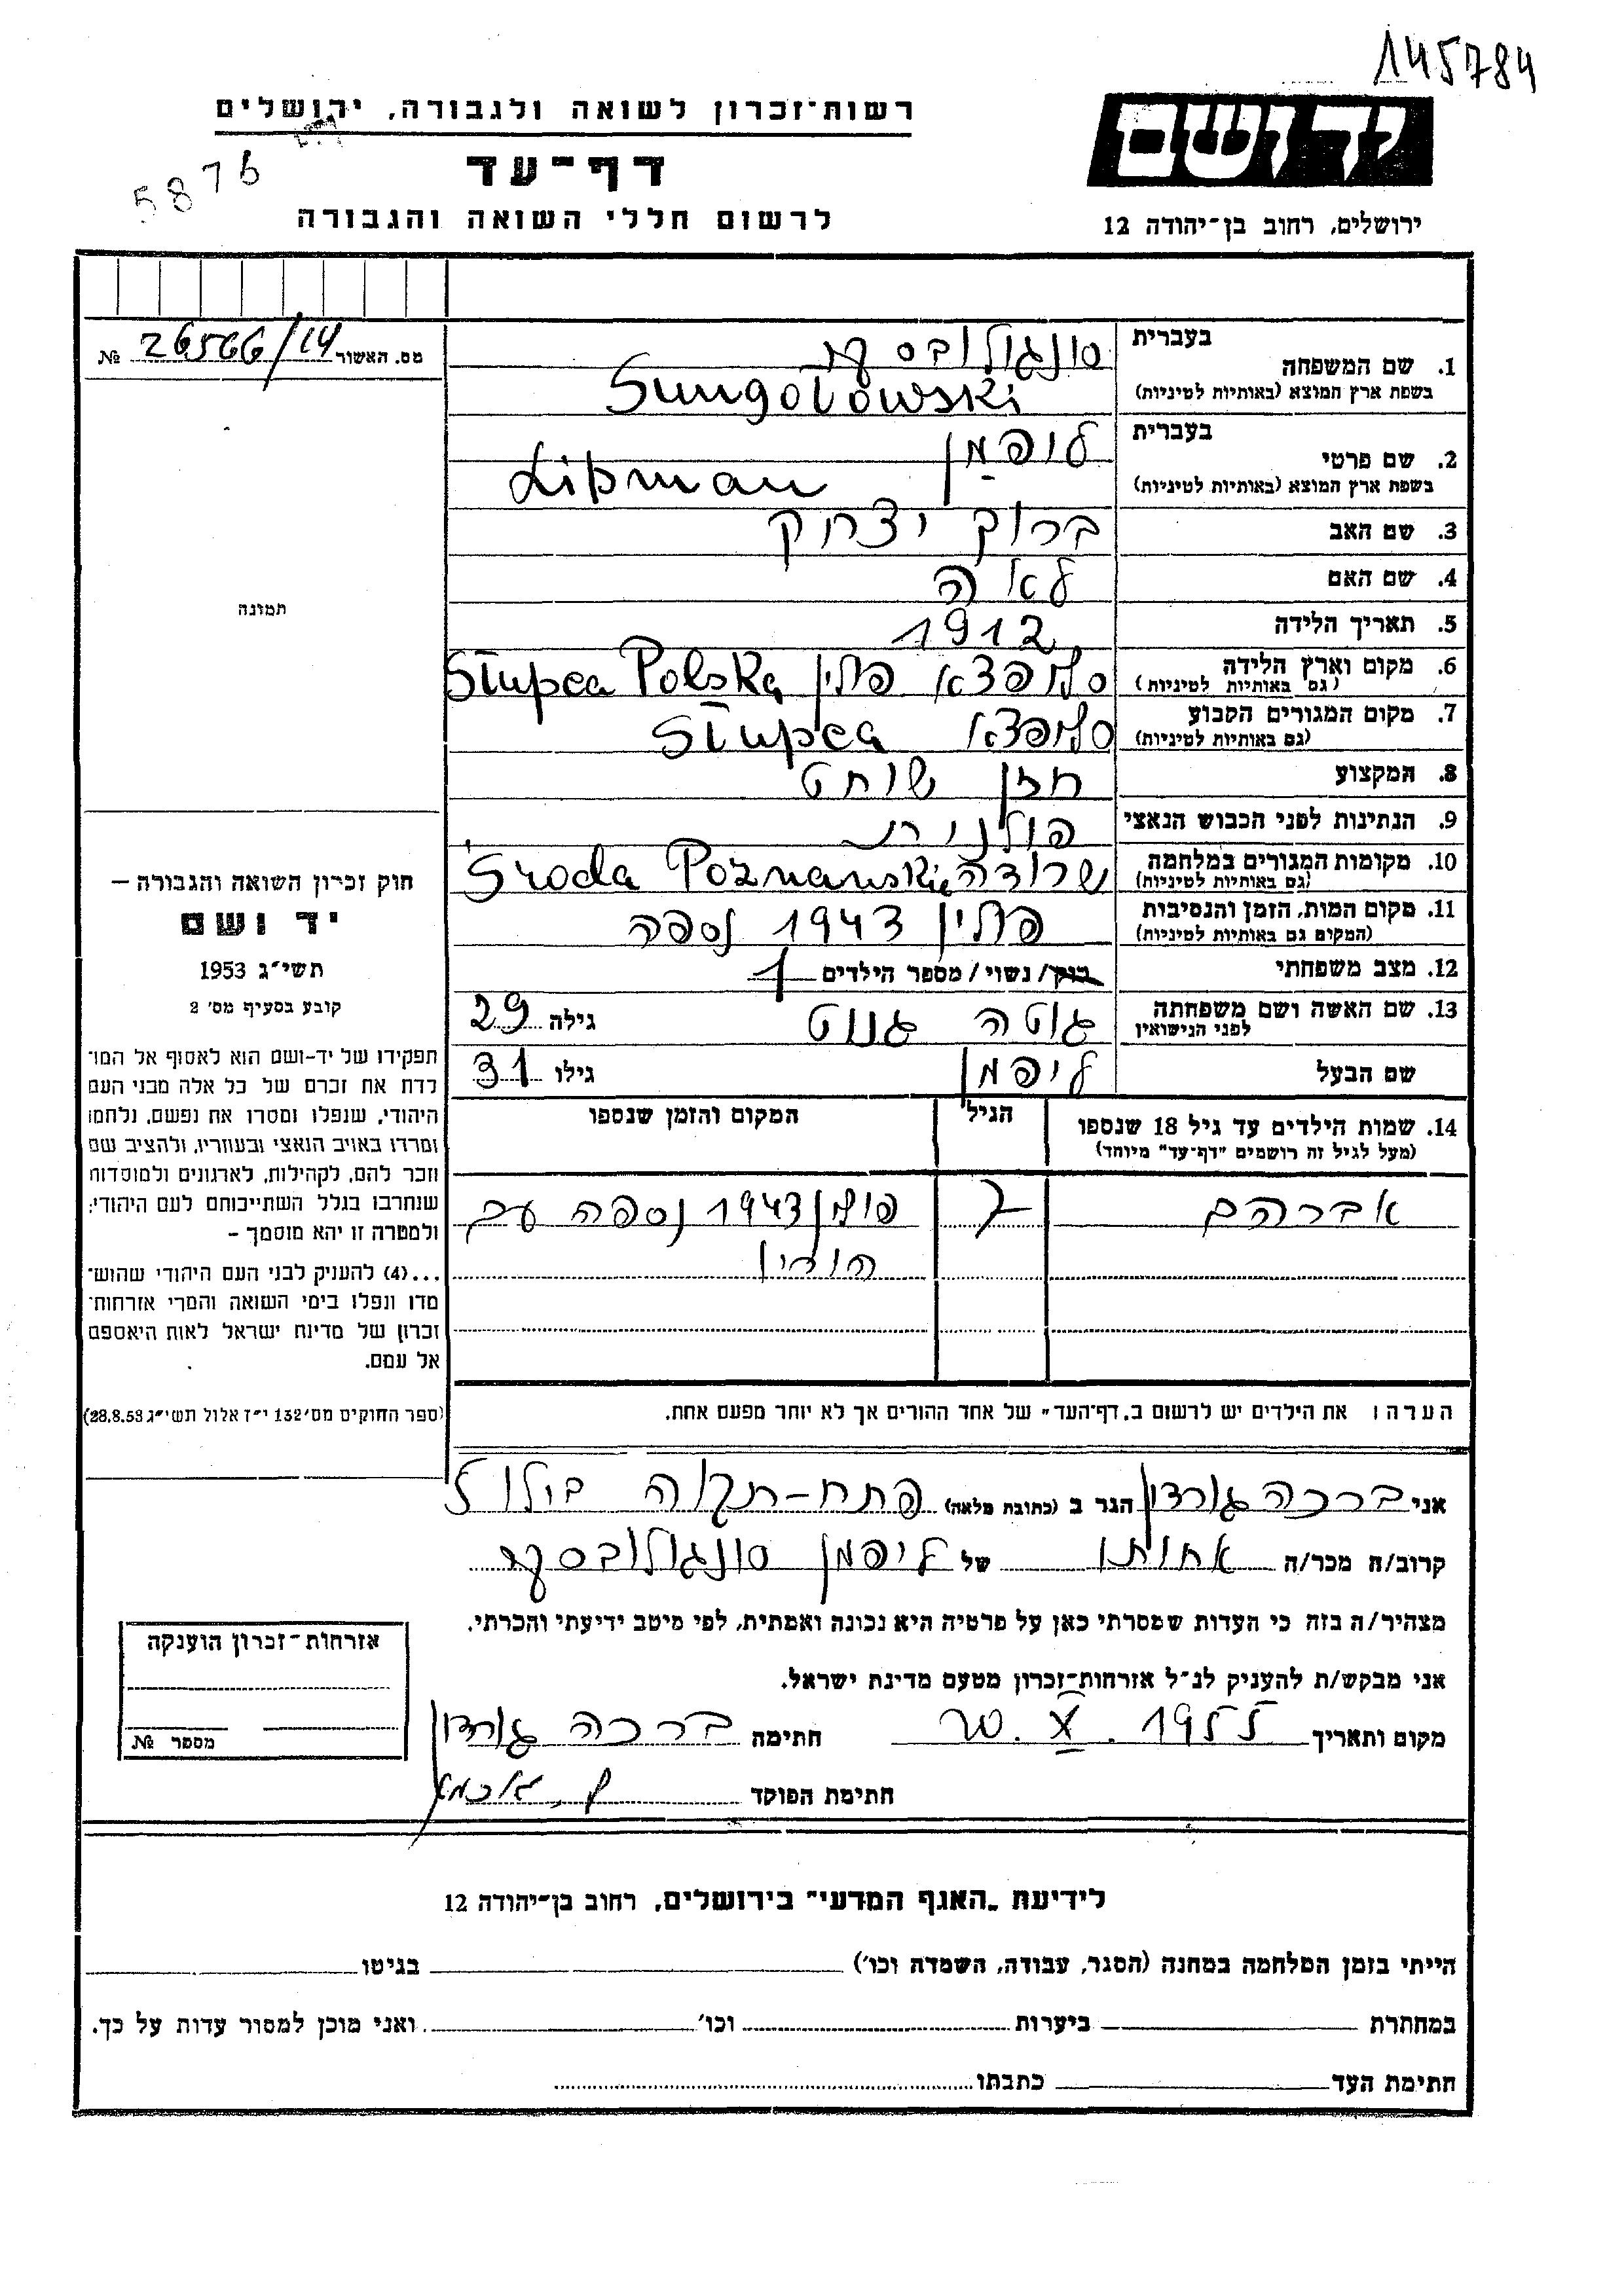 145784
יד ושם
ירושלים, רחוב בן-יהודה 12
רשות-זכרון לשואה ולגבורה, ירושלים
דף-עד
לרשום חללי השואה והגבורה
5876
מס. האשור 26566/14 №
בעברית
1. שם המשפחה סונגולובסקי
בשפת ארץ המוצא (באותיות לטיניות) Sungolowski
בעברית
2. שם פרטי ליפמן
בשפת ארץ המוצא (באותיות לטיניות) Lipman
3. שם האב ברוך יצחק
4. שם האם לאה
5. תאריך הלידה 1912
6. מקום וארץ הלידה סלופצא פולין Słupca Polska
(גם באותיות לטיניות)
7. מקום המגורים הקבוע סלופצא Słupca
(גם באותיות לטיניות)
8. המקצוע חזן שוחט
9. הנתינות לפני הכבוש הנאצי פולנית
10. מקומות המגורים במלחמה שרודה Środa Poznańskie
(גם באותיות לטיניות)
11. מקום המות, הזמן והנסיבות פולין 1943 נספה
(המקום גם באותיות לטיניות)
12. מצב משפחתי רוק/ נשוי/ מספר הילדים 1
13. שם האשה ושם משפחתה גוטה גנוט גילה 29
לפני הנישואין
שם הבעל ליפמן גילו 31
14. שמות הילדים עד גיל 18 שנספו הגיל המקום והזמן שנספו
(מעל לגיל זה רושמים "דף-עד" מיוחד)
אברהם 7 פולין 1943 נספה עם
הוריו
הערה: את הילדים יש לרשום ב„דף-העד" של אחד ההורים אך לא יותר מפעם אחת.
תמונה
חוק זכרון השואה והגבורה –
יד ושם
תשי"ג 1953
קובע בסעיף מס' 2
תפקידו של יד-ושם הוא לאסוף אל המו־
לדת את זכרם של כל אלה מבני העם
היהודי, שנפלו ומסרו את נפשם, נלחמו
ומרדו באויב הנאצי ובעוזריו, ולהציב שם
וזכר להם, לקהילות, לארגונים ולמוסדות
שנחרבו בגלל השתייכותם לעם היהודי;
ולמטרה זו יהא מוסמך –
...(4) להעניק לבני העם היהודי שהוש־
מדו ונפלו בימי השואה והמרי אזרחות־
זכרון של מדינת ישראל לאות היאספם
אל עמם.
(ספר החוקים מס' 132 י"ז אלול תשי"ג 28.8.53)
אני ברכה גורדון הגר ב (כתובת מלאה) פתח-תקוה
קרוב/ה מכר/ה אחותו של ליפמן סונגולובסקי
מצהיר/ה בזה כי העדות שמסרתי כאן על פרטיה היא נכונה ואמתית, לפי מיטב ידיעתי והכרתי.
אני מבקש/ת להעניק לנ"ל אזרחות-זכרון מטעם מדינת ישראל.
מקום ותאריך 20. X. 1955 חתימה ברכה גורדון
חתימת הפוקד
אזרחות-זכרון הוענקה
מספר №
לידיעת „האגף המדעי" בירושלים, רחוב בן-יהודה 12
הייתי בזמן המלחמה במחנה (הסגר, עבודה, השמדה וכו') בגיטו
במחתרת ביערות וכו' ואני מוכן למסור עדות על כך.
חתימת העד כתבתו